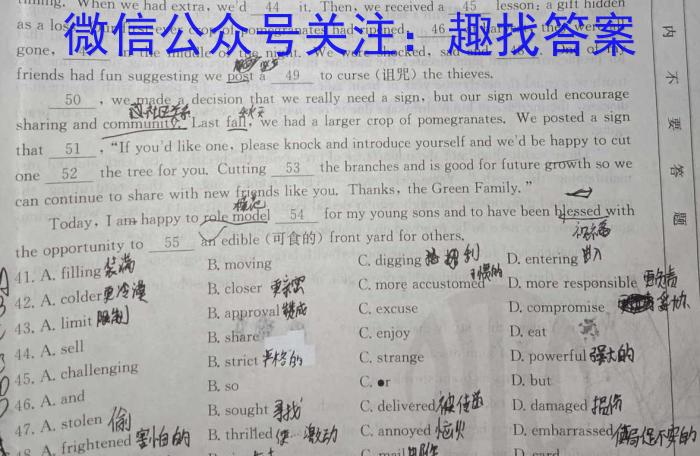 When we had extra, we'd 44 it. Then, we received a 45 lesson: a gift hidden
as a
微信公众号关注：趣找答案
gone,
friends had fun suggesting we post a 49 to curse (诅咒) the thieves.
50 , we made a decision that we really need a sign, but our sign would encourage
sharing and community. Last fall, we had a larger crop of pomegranates. We posted a sign
秋天
that 51 , “If you'd like one, please knock and introduce yourself and we'd be happy to cut
one 52 the tree for you. Cutting 53 the branches and is good for future growth so we
can continue to share with new friends like you. Thanks, the Green Family.”
Today, I am happy to role model 54 for my young sons and to have been blessed with
祝福
the opportunity to 55 an edible (可食的) front yard for others.
41. A. filling 装满 B. moving C. digging D. entering 进入
42. A. colder 更冷漠 B. closer C. more accustomed 习惯的 D. more responsible 更负责
43. A. limit 限制 B. approval 赞成 C. excuse D. compromise 妥协
44. A. sell B. share C. enjoy D. eat
45. A. challenging B. strict 严格的 C. strange D. powerful 强大的
46. A. and B. so C. or D. but
47. A. stolen 偷 B. sought 寻找 C. delivered 被传递 D. damaged 损伤
A. frightened 害怕的 B. thrilled 激动 C. annoyed 恼火 D. embarrassed 局促不安的
C. mail D. card
内不要答题